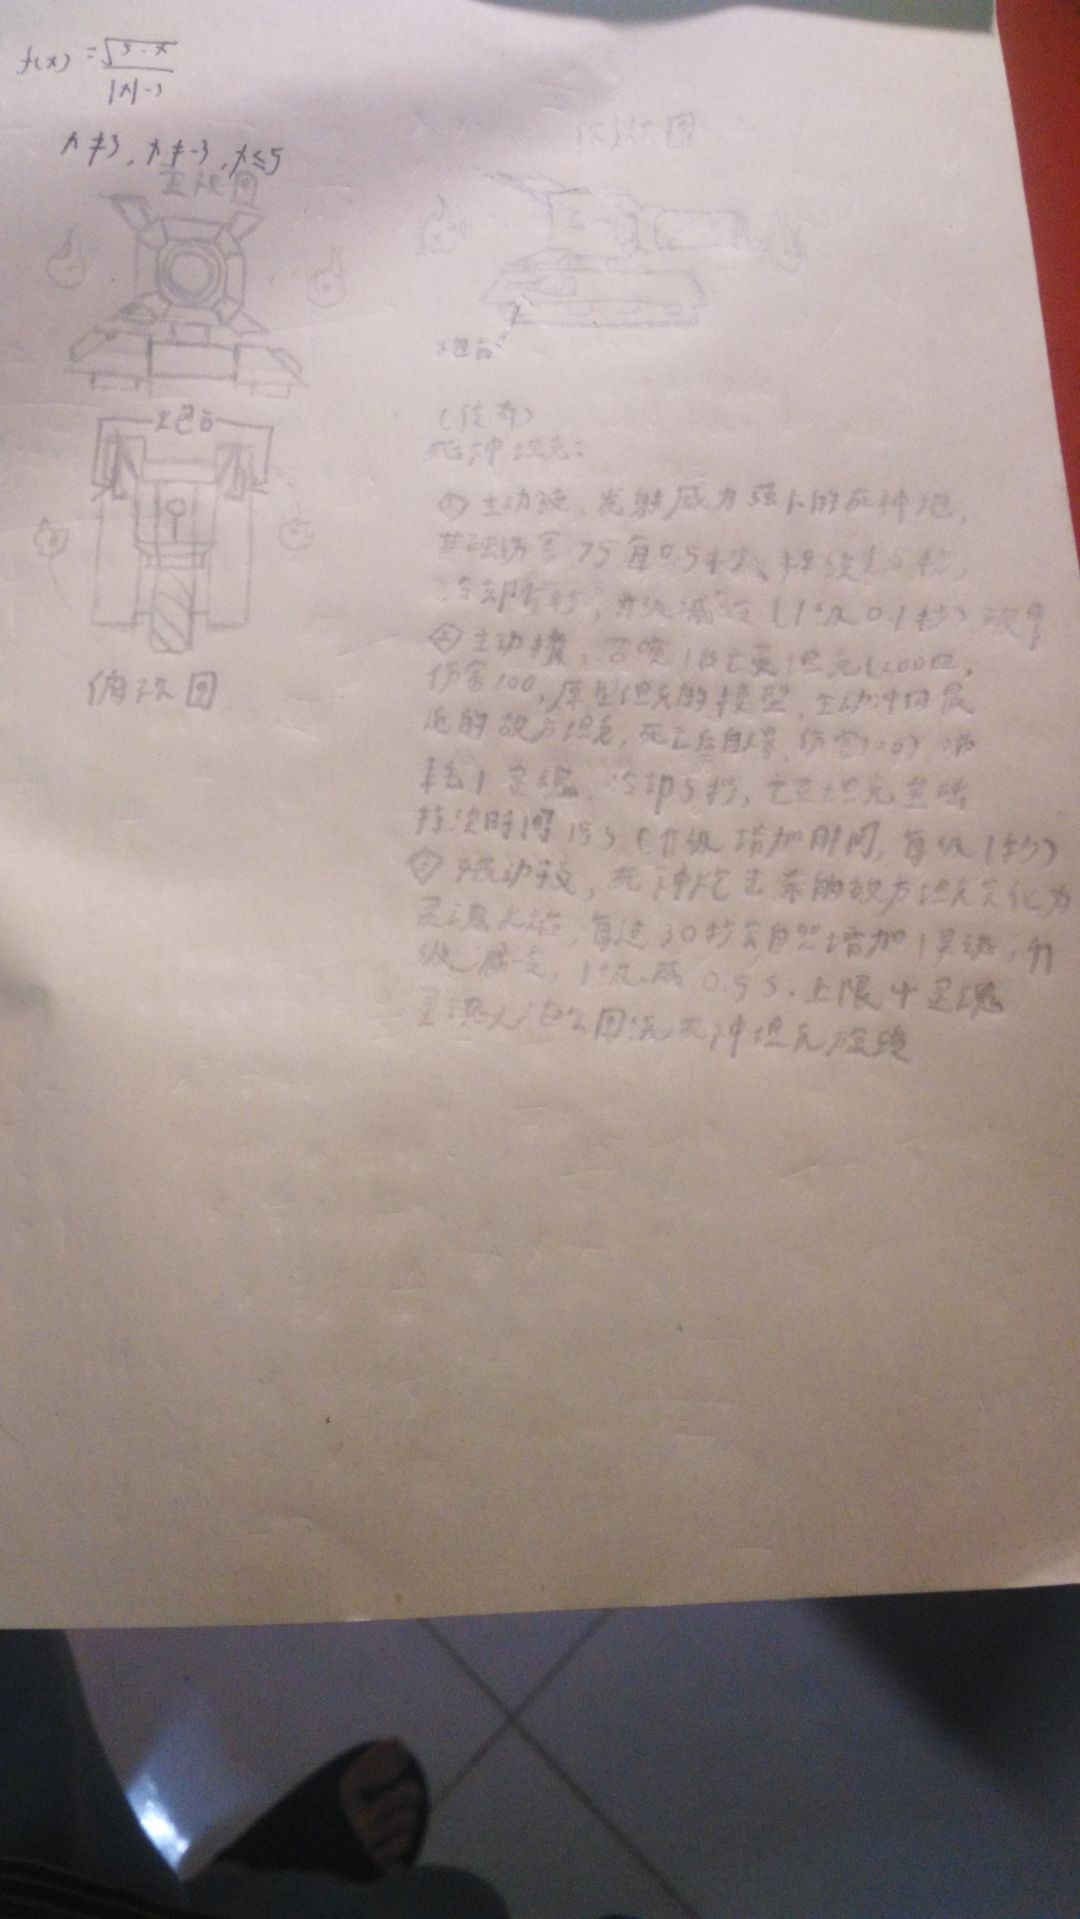 f(x) = √(5-x) / (|x|-3)
x≠3, x≠-3, x≤5
主视图
侧视图
炮台
炮台
俯视图
(传奇)
死神坦克:
① 主动技, 发射威力强大的死神炮,
基础伤害75每0.5秒, 持续1.5秒,
冷却 秒, 升级减 (1级0.1秒)
② 主动技, 召唤1台亡灵坦克(200血,
伤害100, 原型坦克的模型, 主动冲向最
近的敌方坦克, 死亡后自爆, 伤害100), 消
耗1灵魂, 冷却5秒, 亡灵坦克基础
持续时间15s(升级增加时间, 每级1秒)
③ 被动技, 死神坦克击杀的敌方坦克会化为
灵魂火焰, 每过30秒会自然增加1灵魂, 升
级减 , 1级减0.5s. 上限4灵魂
灵魂火焰会围绕死神坦克旋转